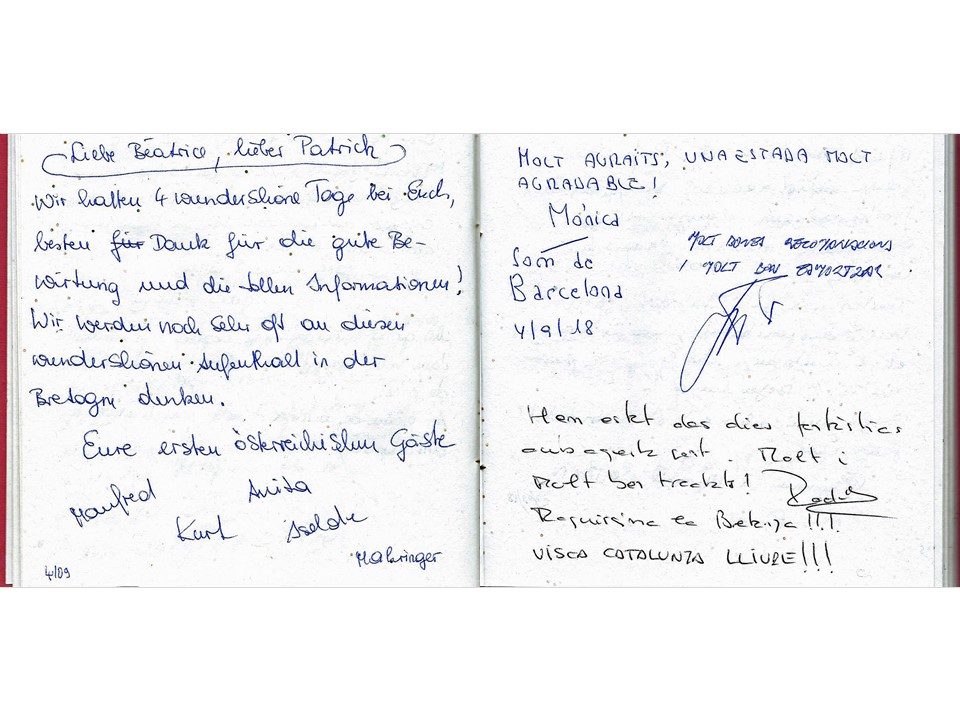 Liebe Béatrice, lieber Patrick
Wir hatten 4 wundershöne Tage bei Euch,
besten für Dank für die gute Be-
wirtung und die tollen Informationen!
Wir werden noch sehr oft an diesen
wundershönen Aufenthalt in der
Bretagne denken.
Eure ersten österreichishen Gäste
Manfred Anita
Kurt
Mahringer
4/09
MOLT AGRAITS, UNA ESTADA MOLT
AGRADABLE!
Mónica
Som de
Barcelona
4/9/18
MOLT BONES RECOMANACIONS
I MOLT BON ESMORTZAR
Hem estat dos dies fantàstics
amb aquesta gent. Molt i
Molt ben tractats!
Boniquissima la Bretanya!!!!
VISCA CATALUNYA LLIURE!!!